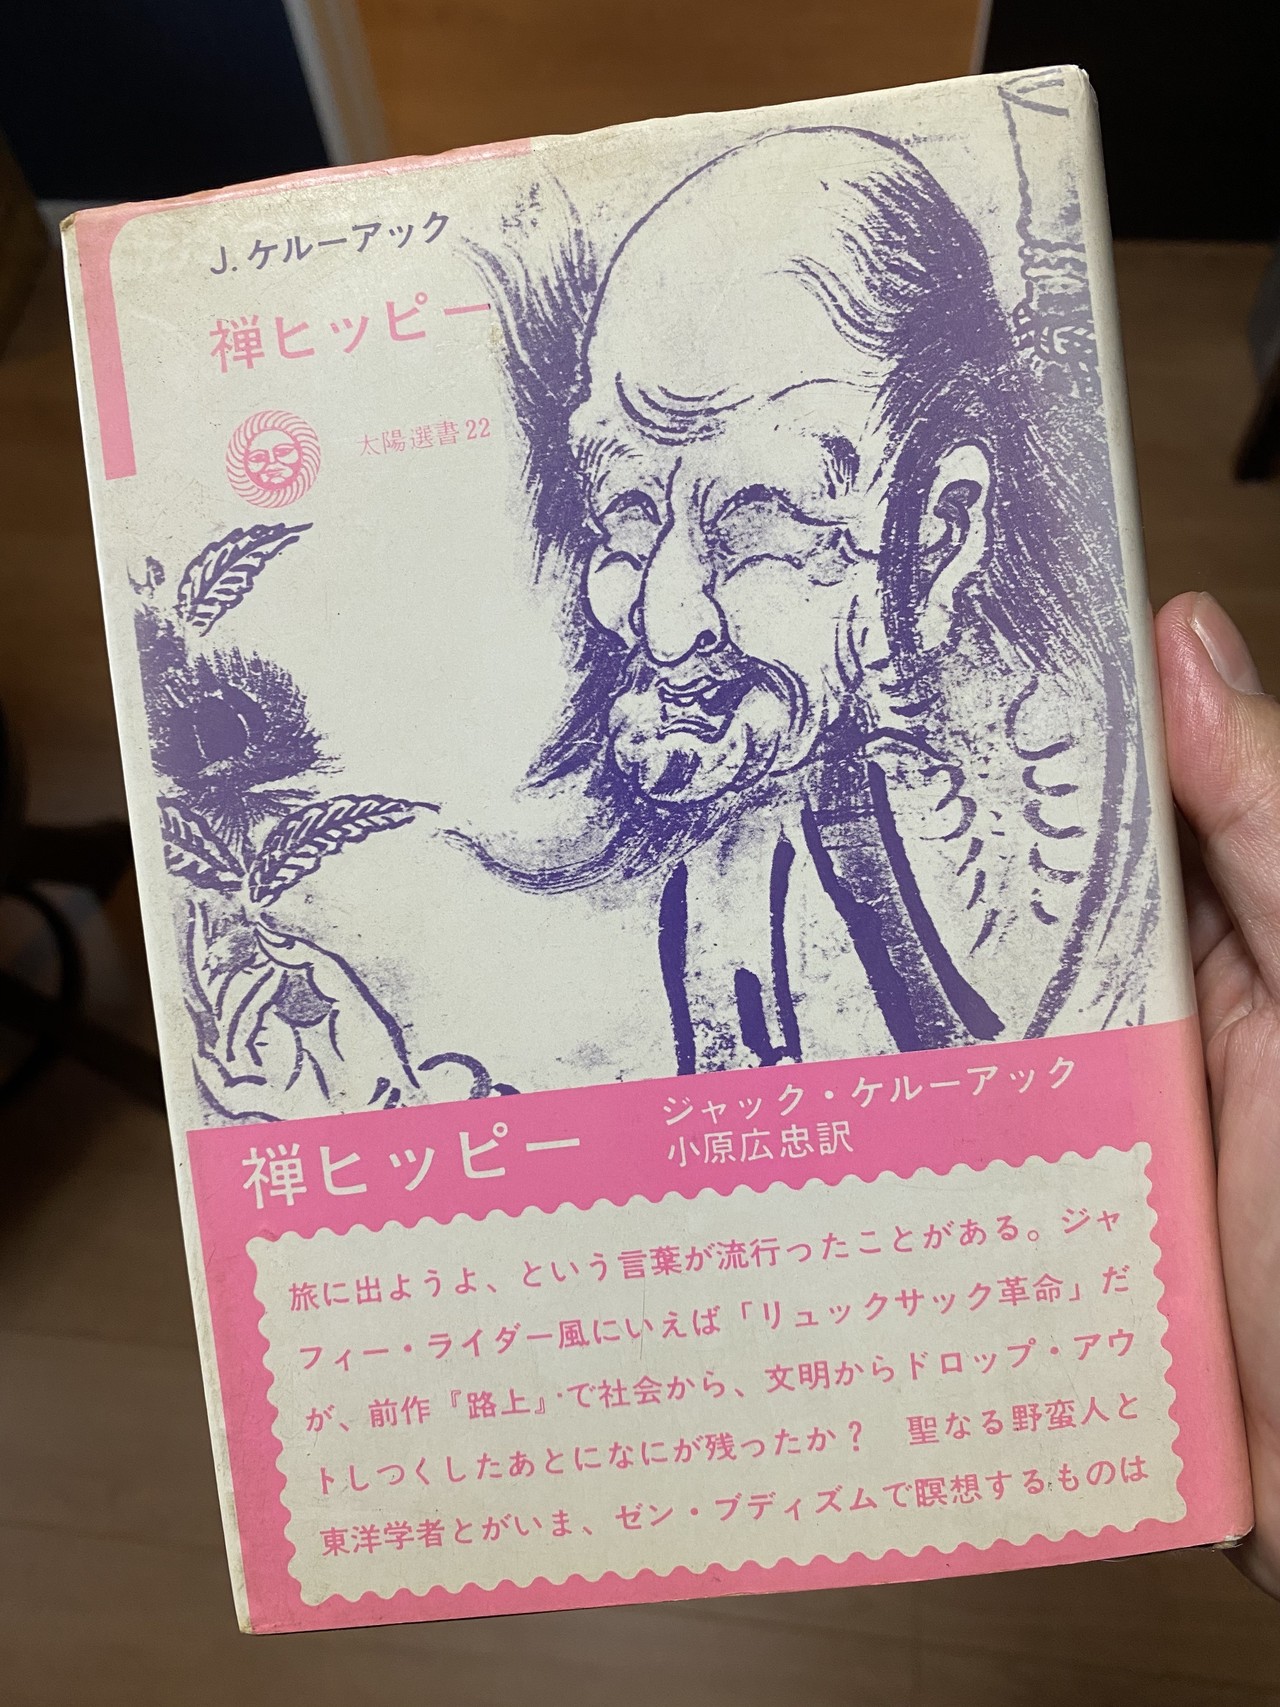 J.ケルーアック
禅ヒッピー
太陽選書22
禅ヒッピー
ジャック・ケルーアック
小原広忠訳
旅に出ようよ、という言葉が流行ったことがある。ジャ
フィー・ライダー風にいえば「リュックサック革命」だ
が、前作『路上』で社会から、文明からドロップ・アウ
トしつくしたあとになにが残ったか？　聖なる野蛮人と
東洋学者とがいま、ゼン・ブディズムで瞑想するものは